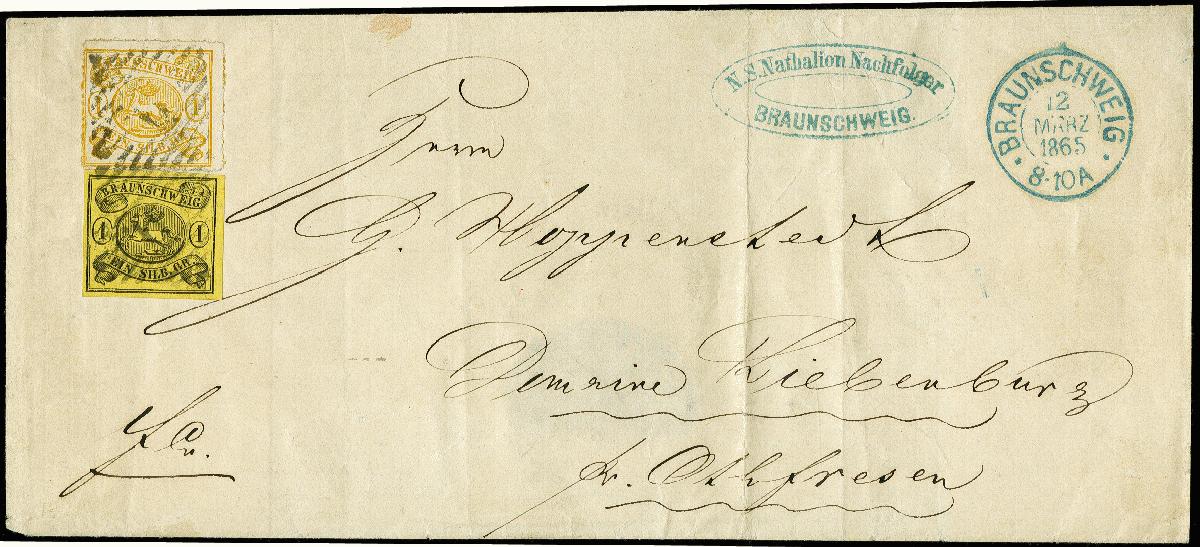 BRAUNSCHWEIG
1 1
EIN SILB.GR.
BRAUNSCHWEIG
1 1
EIN SILB.GR.
N.S.Nathalion Nachfolger
BRAUNSCHWEIG.
BRAUNSCHWEIG
12
MÄRZ
1865
8-10A
Herrn
G. Hoppenstedt
Domaine Liebenburg
pr. Othfresen